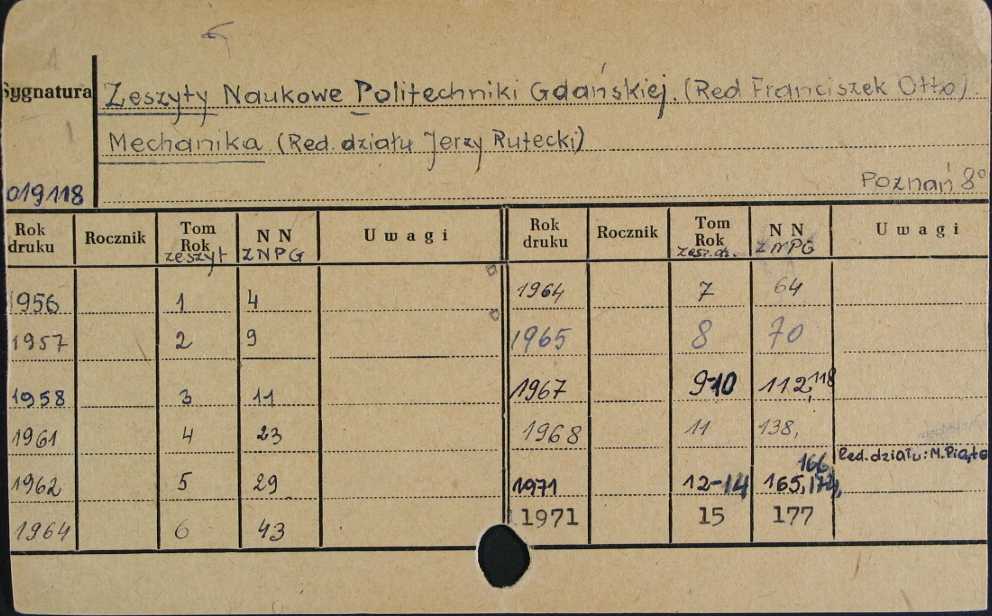 Sygnatura Zeszyty Naukowe Politechniki Gdańskiej. (Red Franciszek Otto).
Mechanika (Red. działu Jerzy Rutecki)
019118 Poznań 8°
Rok druku Rocznik Tom Rok zeszyt NN ZNPG Uwagi Rok druku Rocznik Tom Rok NN ZNPG Uwagi
1956 1 4 1964 7 64
1957 2 9 1965 8 70
1958 3 11 1967 9-10 112, 118
1961 4 23 1968 11 138,
Red. działu: M. Piąto
1962 5 29 1971 12-14 165, 166,
1964 6 43 1971 15 177